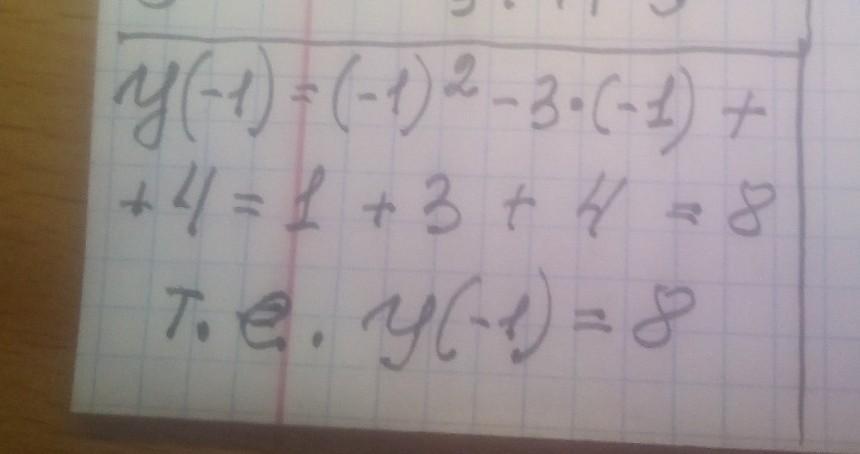 y(-1) = (-1)² - 3·(-1) +
+ 4 = 1 + 3 + 4 = 8
т. е. y(-1) = 8